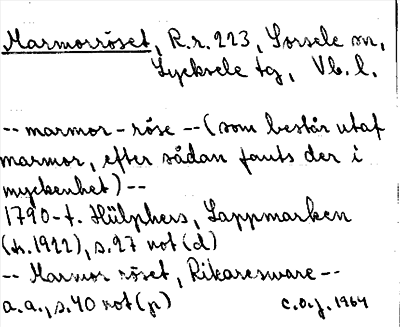 Marmorröset, R.r. 223, Sorsele sn,
Lycksele tg, Vb. l.
-- marmor - röse -- (som består utaf
marmor, efter sådan fants der i
myckenhet) --
1790-t. Hülphers, Lappmarken
(tr. 1922), s. 27 not (d)
-- Marmor röset, Rikaresware --
a.a., s. 40 not (p)
C.O.J. 1964